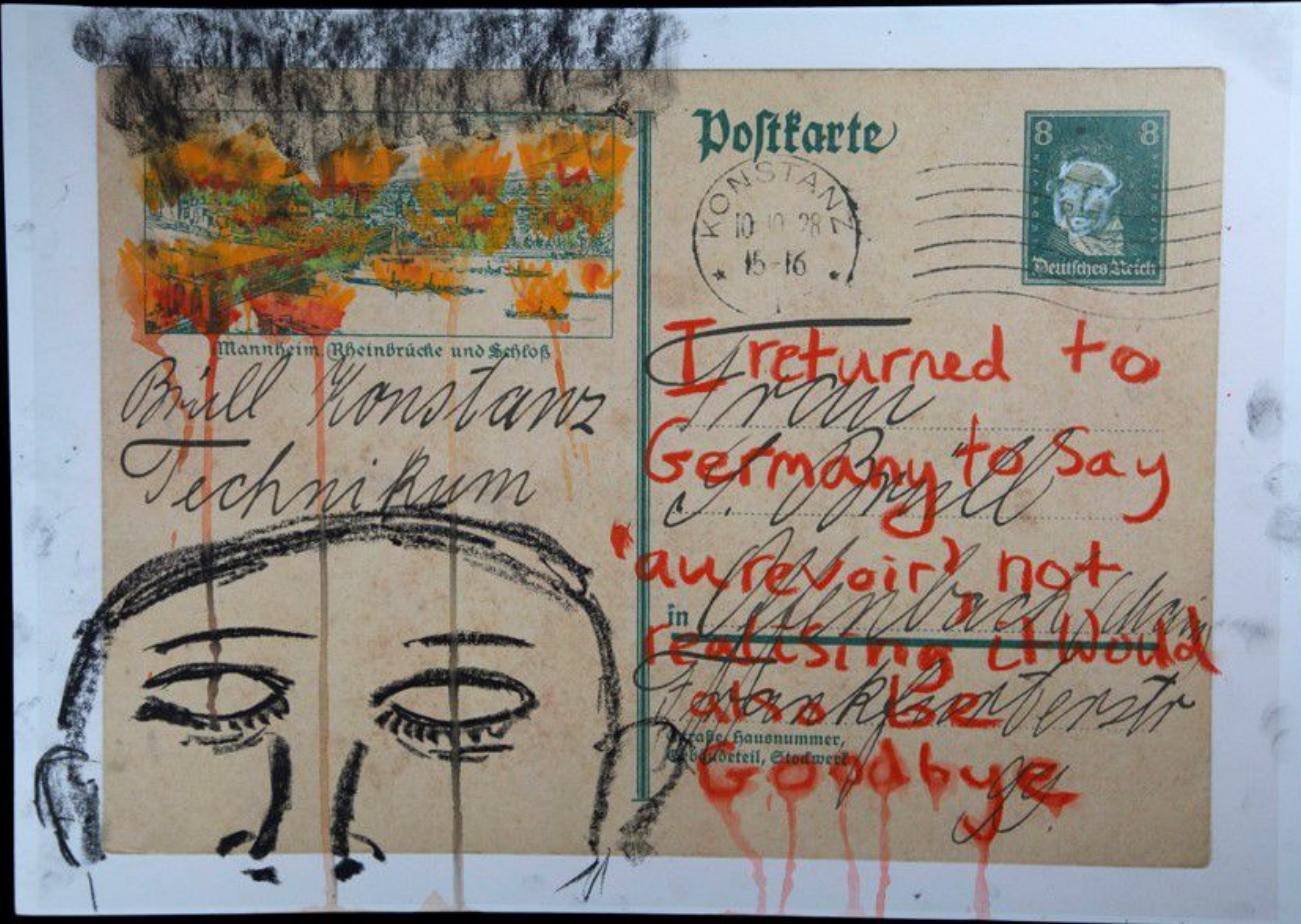 Postkarte
8 8
KONSTANZ
10 10 28
15-16
Deutsches Reich
Mannheim, Rheinbrücke und Schloß
Brüll Konstanz
Technikum
I returned to
Germany to Say
'au revoir', not
realising it would
also be
Goodbye
Frau
J. Brüll
in Offenbach (Main
Frankfurterstr
Straße, Hausnummer,
Gebäudeteil, Stockwerk